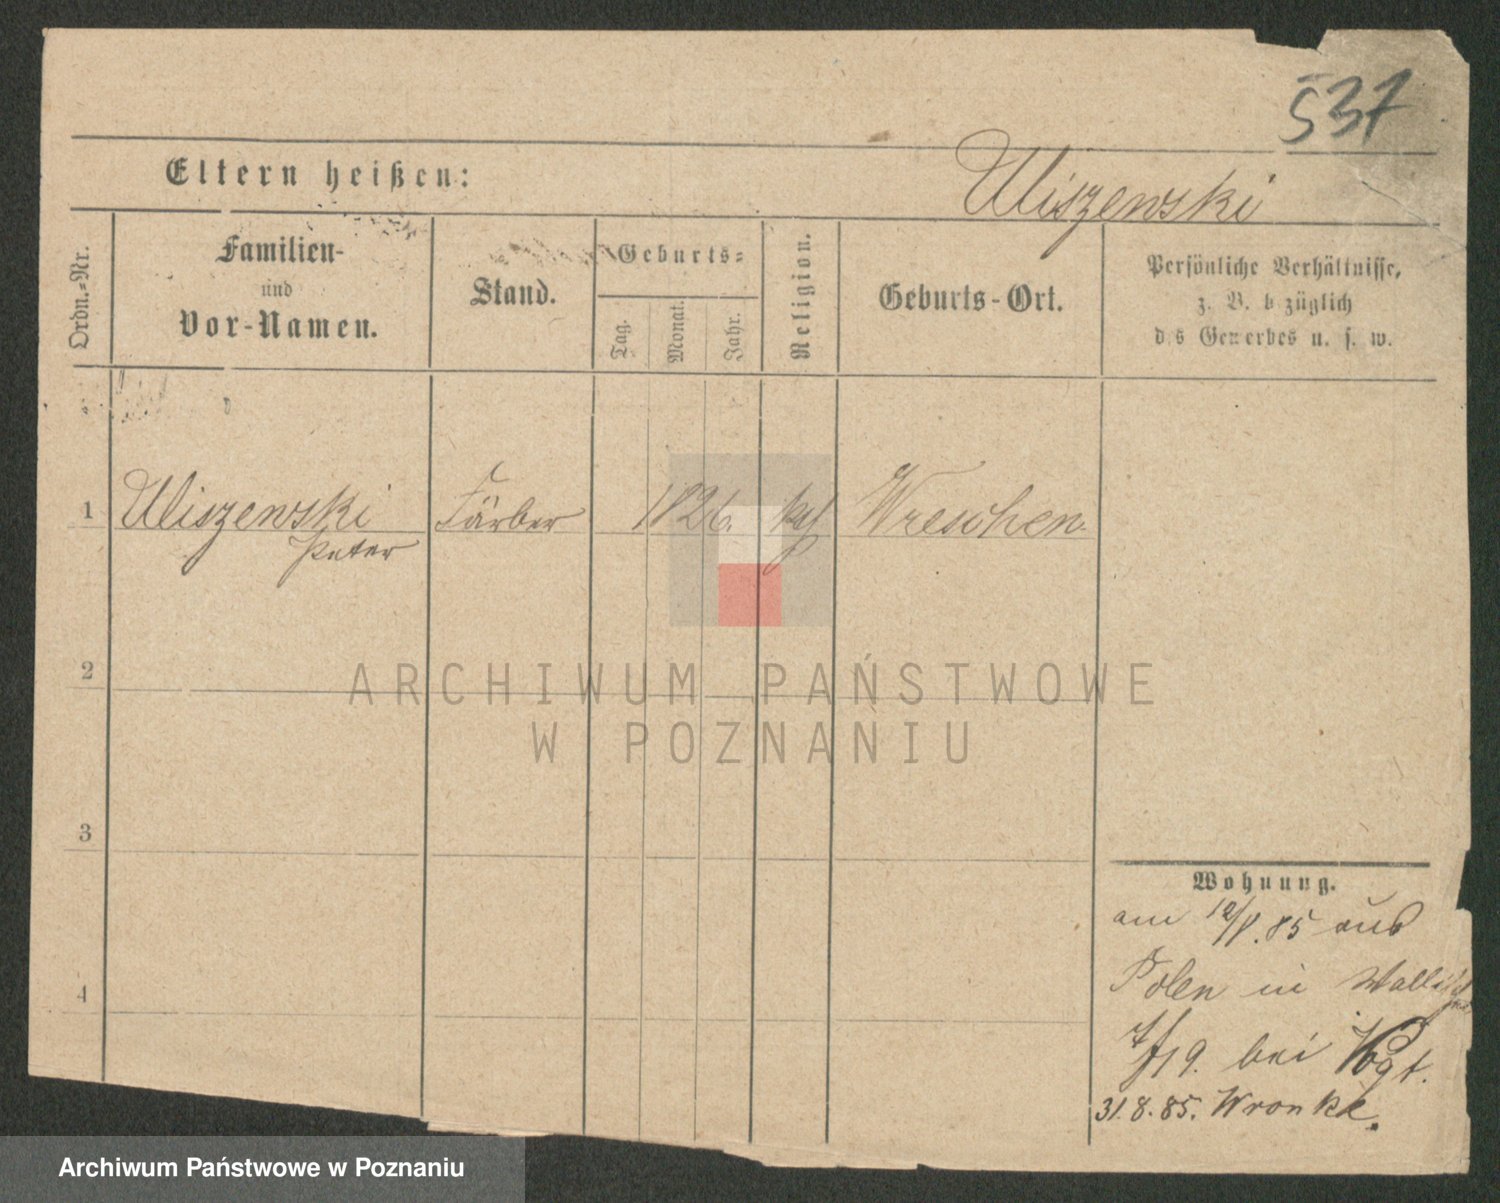 537
Eltern heißen:
Uliszewski
Ordn.-Nr.
Familien-
und
Vor-Namen.
Stand.
Geburts-
Tag.
Monat.
Jahr.
Religion.
Geburts-Ort.
Persönliche Verhältnisse,
z. B. b züglich
d s Gewerbes u. s. w.
1
Uliszewski
Peter
Färber
1826.
kath
Wreschen.
2
3
4
Wohnung.
am 12/8.85 aus
Polen in
bei Vogt.
31.8.85. Wronke.
ARCHIWUM PAŃSTWOWE
W POZNANIU
Archiwum Państwowe w Poznaniu